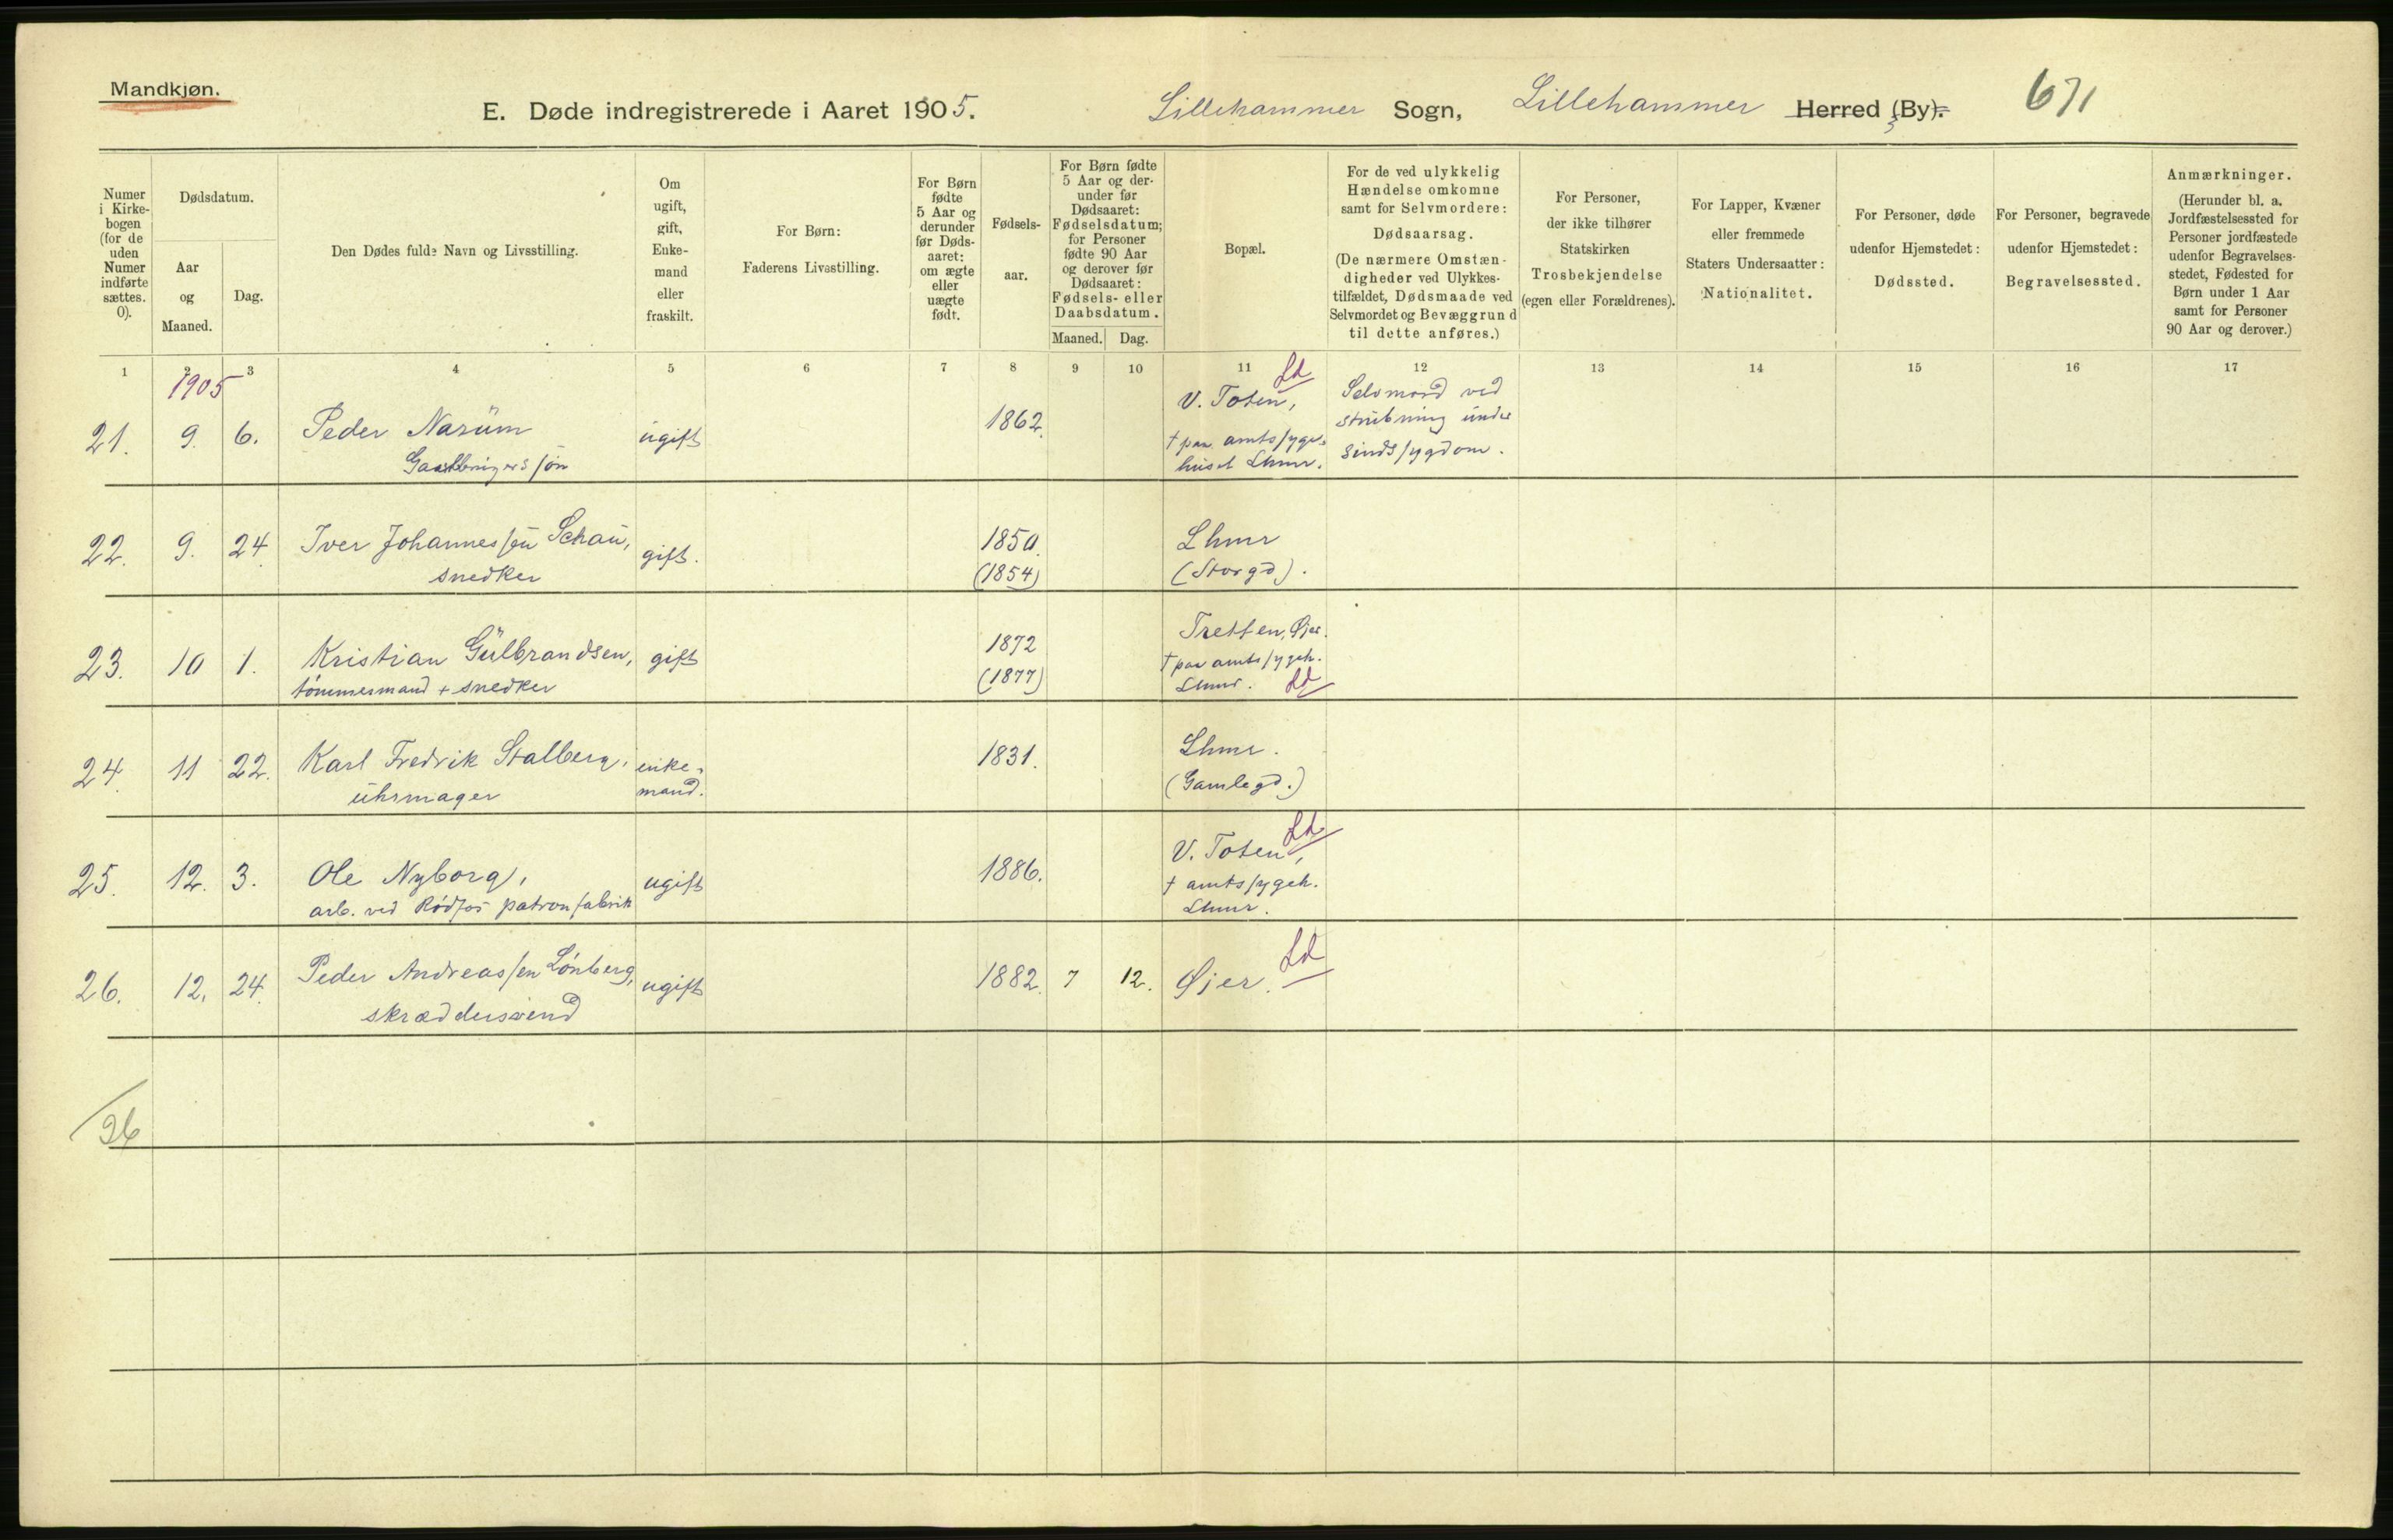 Mandkjøn.
E. Døde indregistrerede i Aaret 1905. Lillehammer Sogn, Lillehammer Herred (By). 671
Numer i Kirke-bogen (for de uden Numer indførte sættes. 0).
Dødsdatum.
Aar og Maaned.
Dag.
Den Dødes fulde Navn og Livsstilling.
Om ugift, gift, Enke-mand eller fraskilt.
For Børn:
Faderens Livsstilling.
For Børn fødte 5 Aar og derunder før Døds-aaret: om ægte eller uægte født.
Fødsels-aar.
For Børn fødte 5 Aar og der-under før Dødsaaret: Fødselsdatum; for Personer fødte 90 Aar og derover før Dødsaaret: Fødsels- eller Daabsdatum.
Maaned. Dag.
Bopæl.
For de ved ulykkelig Hændelse omkomne samt for Selvmordere:
Dødsaarsag.
(De nærmere Omstæn-digheder ved Ulykkes-tilfældet, Dødsmaade ved Selvmordet og Bevæggrund til dette anføres.)
For Personer, der ikke tilhører Statskirken
Trosbekjendelse
(egen eller Forældrenes).
For Lapper, Kvæner eller fremmede Staters Undersaatter:
Nationalitet.
For Personer, døde udenfor Hjemstedet:
Dødssted.
For Personer, begravede udenfor Hjemstedet:
Begravelsessted.
Anmærkninger.
(Herunder bl. a. Jordfæstelsessted for Personer jordfæstede udenfor Begravelses-stedet, Fødested for Børn under 1 Aar samt for Personer 90 Aar og derover.)
1 2 3 4 5 6 7 8 9 10 11 12 13 14 15 16 17
1905
21. 9. 6. Peder Narum ugift 1862. V. Toten, Selvmord ved
Gaardbrugerssøn † paa amtssyge- strubning under
huset Lhmr. sindssygdom.
22. 9. 24. Iver Johannessen Schau, gift. 1850. Lhmr
snedker (1854) (Storgd).
23. 10 1. Kristian Gulbrandsen, gift 1872 Tretten, Øier.
tømmermand + snedker (1877) † paa amtssygeh.
Lhmr.
24. 11 22. Karl Fredrik Stalberg, enke- 1831. Lhmr.
uhrmager mand. (Gamlegd.)
25. 12. 3. Ole Nyborg, ugift 1886. V. Toten,
arb. ved Rødfos patronfabrik † amtssygeh.
Lhmr.
26. 12. 24. Peder Andreassen Lønberg, ugift 1882. 7 12. Øier.
skræddersvend
26